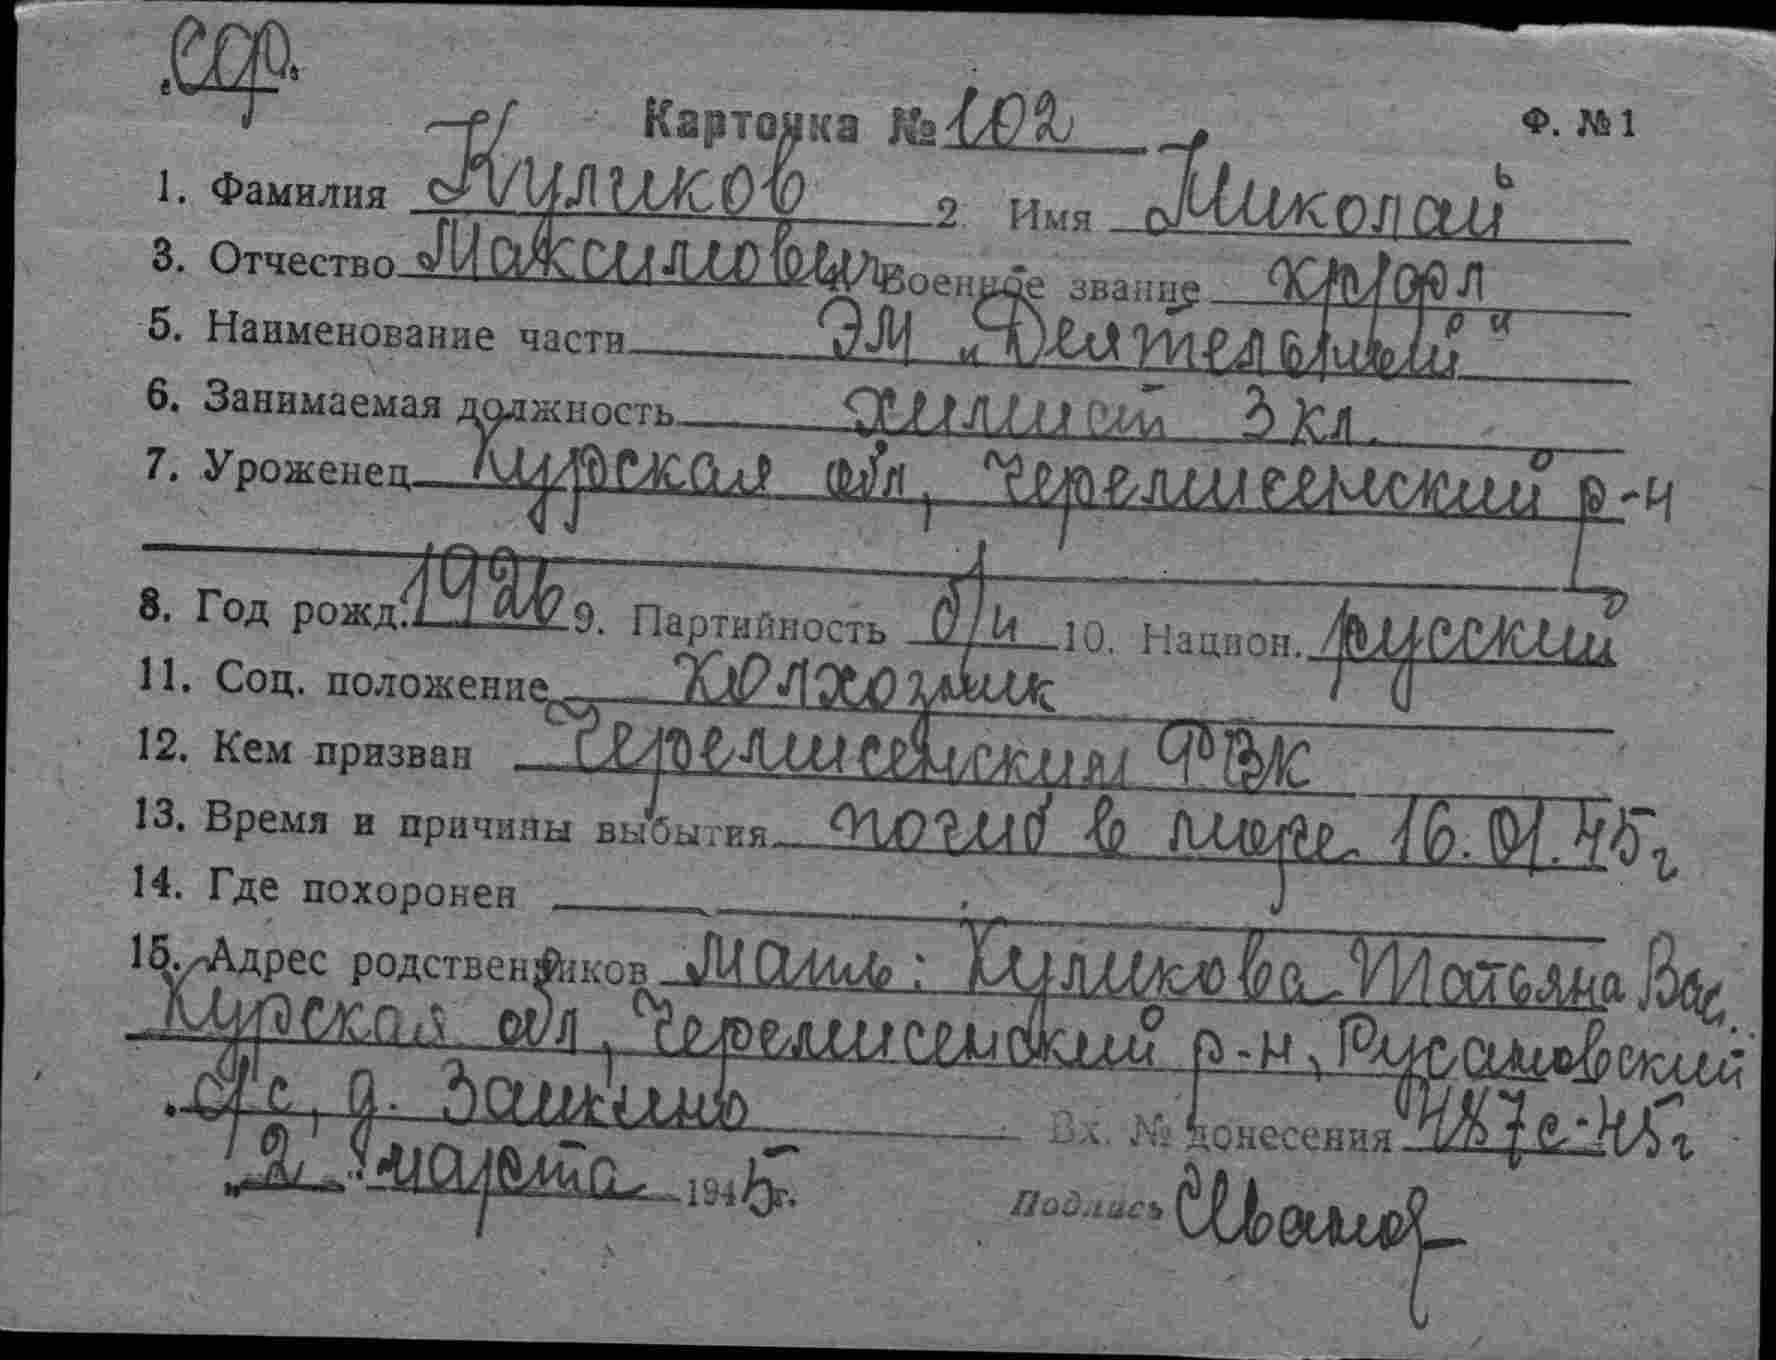 сф.
Карточка № 102 Ф. № 1
1. Фамилия Куликов 2 Имя Николай
3. Отчество Максимович Военное звание кр/фл
5. Наименование части ЭМ „Деятельный"
6. Занимаемая должность химист 3 кл.
7. Уроженец Курская обл, Черемисенский р-н
8. Год рожд. 1926 9. Партийность б/п 10. Национ. русский
11. Соц. положение колхозник
12. Кем призван Черемисенским РВК
13. Время и причины выбытия погиб в море 16.01.45 г
14. Где похоронен
15. Адрес родственников мать: Куликова Татьяна Вас.
Курская обл, Черемисенский р-н, Русановский
с/с, д. Зашкино Вх. № донесения 487с-45г
„2" марта 1945г. Подпись Иванов